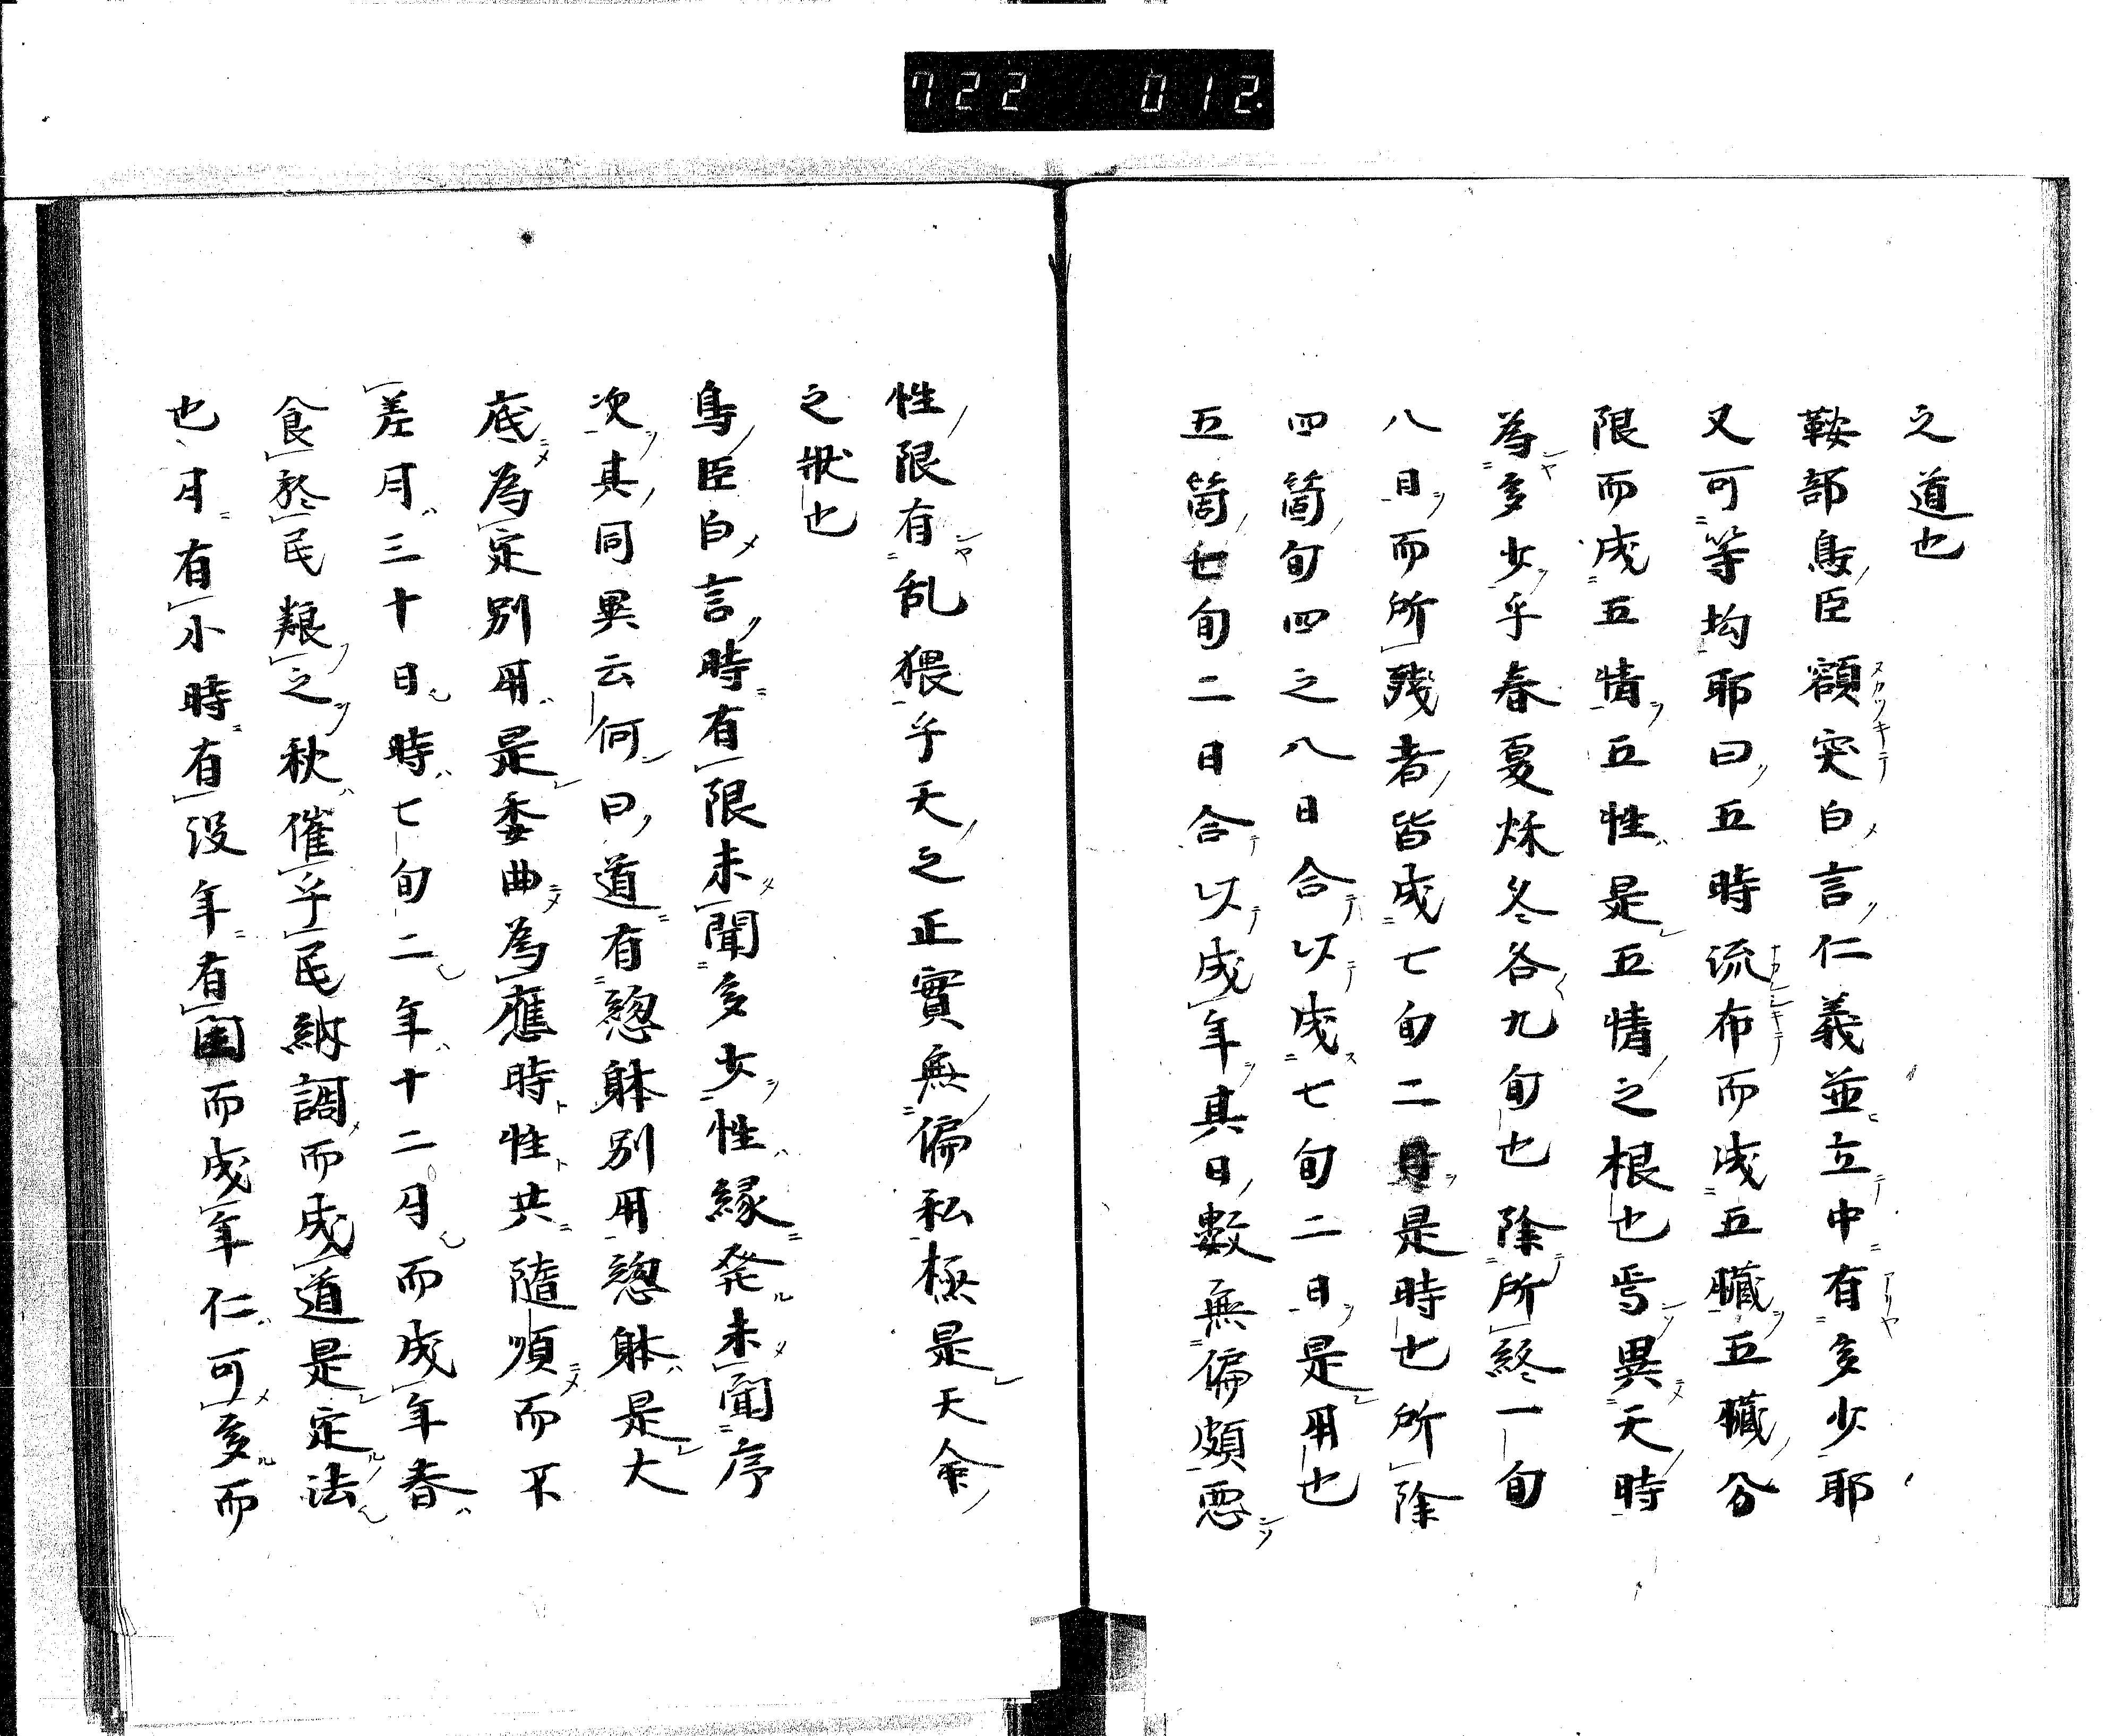 722 012.
之道也
鞍部鳥臣額突白言仁義並立中有多少耶
又可等均耶曰五時流布而成五臓五臓分
限而成五情五性是五情之根也焉異天時
為多少乎春夏秌冬各九旬也除所終一旬
八日而所残者皆成七旬二日是時也所除
四箇旬四之八日合以成七旬二日是用也
五箇七旬二日合以成年其日數無偏頗悪
性限有乱猥乎天之正實無偏私極是天命
之狀也
鳥臣白言時有限未聞多少性縁発未聞序
次其同異云何曰道有惣躰別用惣躰是大
底為定別用是委曲為應時性共隨順而不
差月三十日時七旬二年十二月而成年春
食於民粮之秋催乎民納調而成道是定法
也月有小時有没年有閏而成年仁可多而